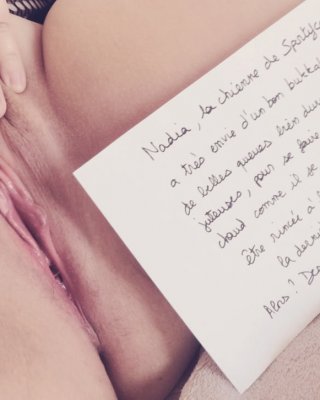 Nadia, la chienne de
a très envie d'un bon
de belles queues bien
juteuses, pour se faire
chaud comme il se
être rincée à l
la derni
Alors ?